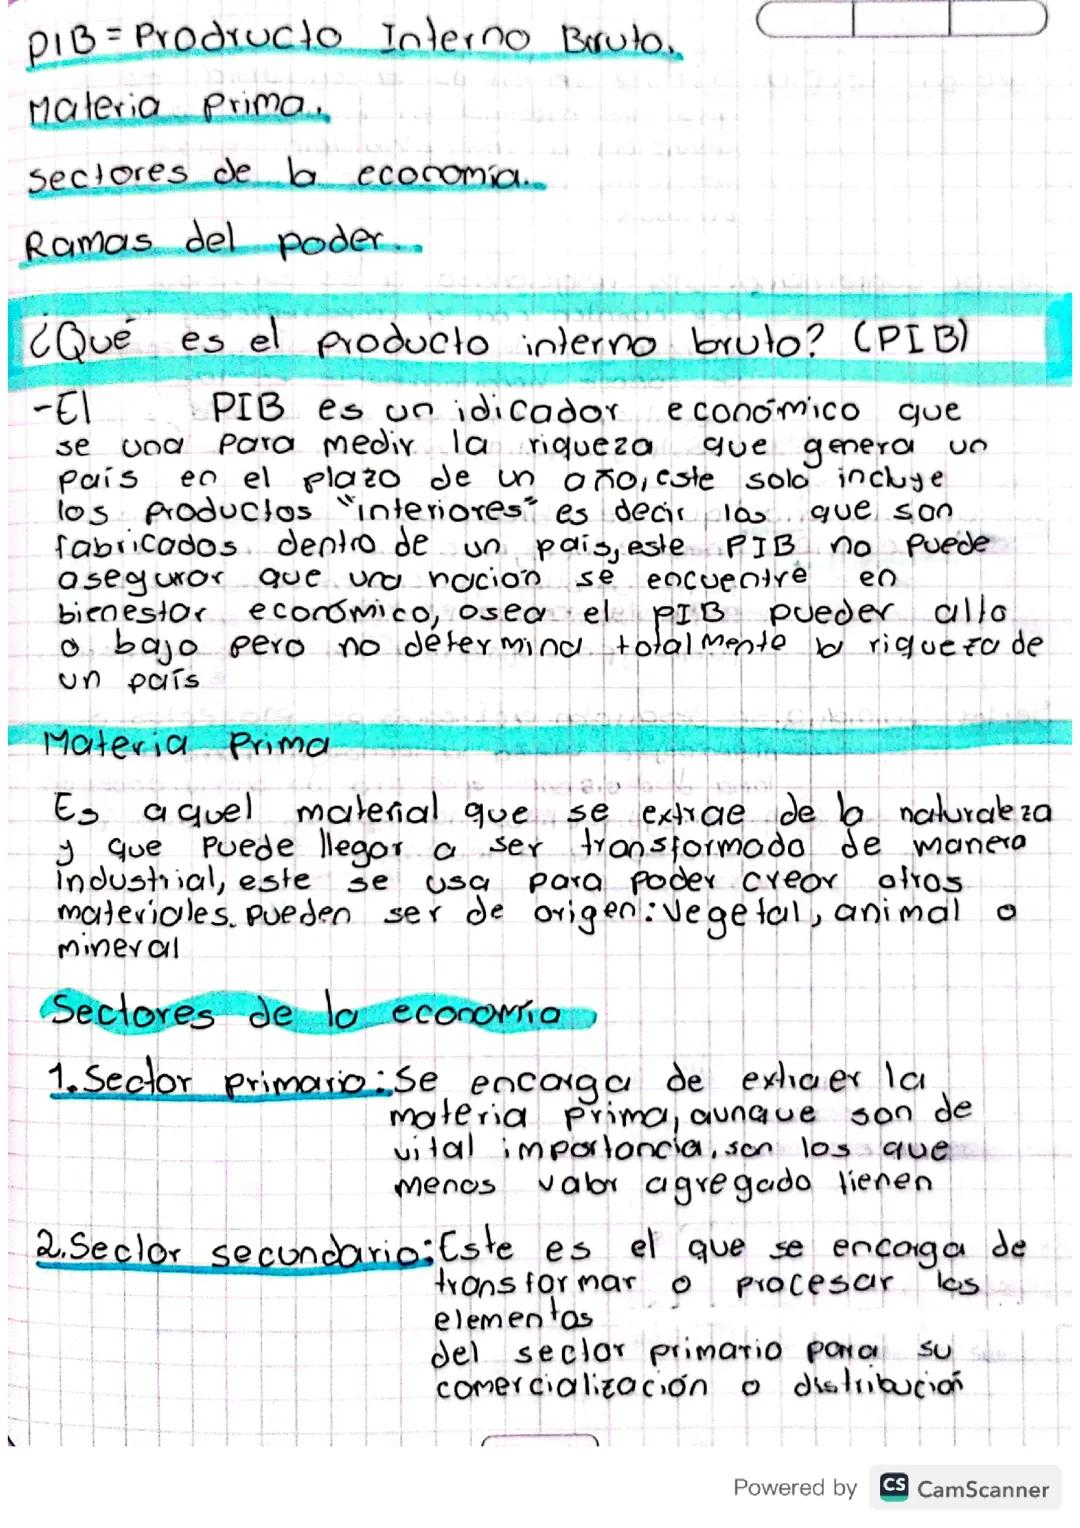 PIB = Producto Interno Bruto.
Materia Prima.
Sectores de la economía.
Ramas del poder.
¿Qué es el producto interno bruto? (PIB)
-El PIB es un idicador económico que
se una para medir la riqueza que genera un
país en el plazo de un año, este solo incluye
los productos "interiores" es decir los que son
fabricados dentro de un país, este PIB no puede
asegurar que una nación se encuentre en
bienestar económico, osea el PIB pueder alto
o bajo pero no determina totalmente la riqueza de
un país
Materia Prima
Es aquel material que se extrae de la naturaleza
y que puede llegar a ser transformado de manera
industrial, este se usa para poder crear otros
materiales. Pueden ser de origen: vegetal, animal o
mineral
Sectores de la economía
1. Sector primario: Se encarga de extraer la
materia prima, aunque son de
vital importancia, son los que
menos valor agregado tienen
2. Sector secundario: Este es el que se encarga de
transformar o procesar los
elementos
del sector primario para su
comercialización o distribución
Powered by CS CamScanner